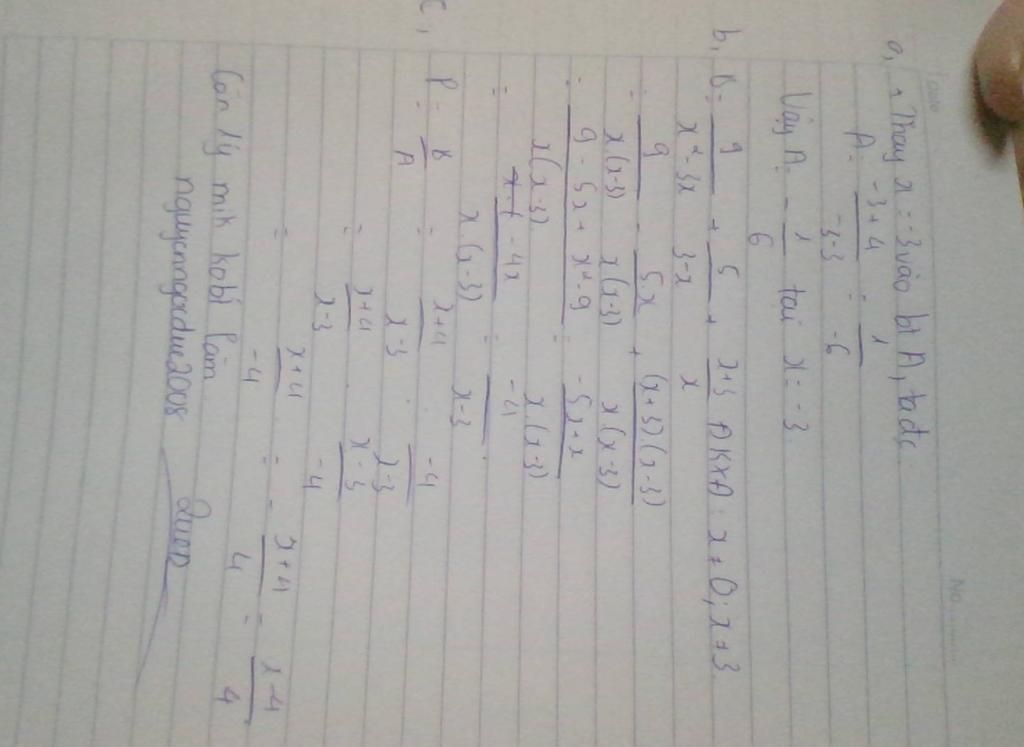 No.
a, + Thay x = -3 vào bt A, ta đc
A = \frac{-3+4}{-3-3} = \frac{1}{-6}
Vậy A = -\frac{1}{6} tại x = -3
b, B = \frac{9}{x²-3x} + \frac{5}{3-x} + \frac{x+3}{x} ĐKXĐ: x ≠ 0; x ≠ 3
= \frac{9}{x(x-3)} - \frac{5x}{x(x-3)} + \frac{(x+3)(x-3)}{x(x-3)}
= \frac{9 - 5x + x² - 9}{x(x-3)} = \frac{-5x+x}{x(x-3)}
= \frac{-4x}{x(x-3)} = \frac{-4}{x-3}
c,
P = \frac{B}{A} = \frac{x+4}{x-3} : \frac{-4}{x-3}
= \frac{x+4}{x-3} . \frac{x-3}{-4}
= \frac{x+4}{-4} = -\frac{x+4}{4} = \frac{x-4}{4}
Còn lý mik kobt làm
nguyenngocduc2008